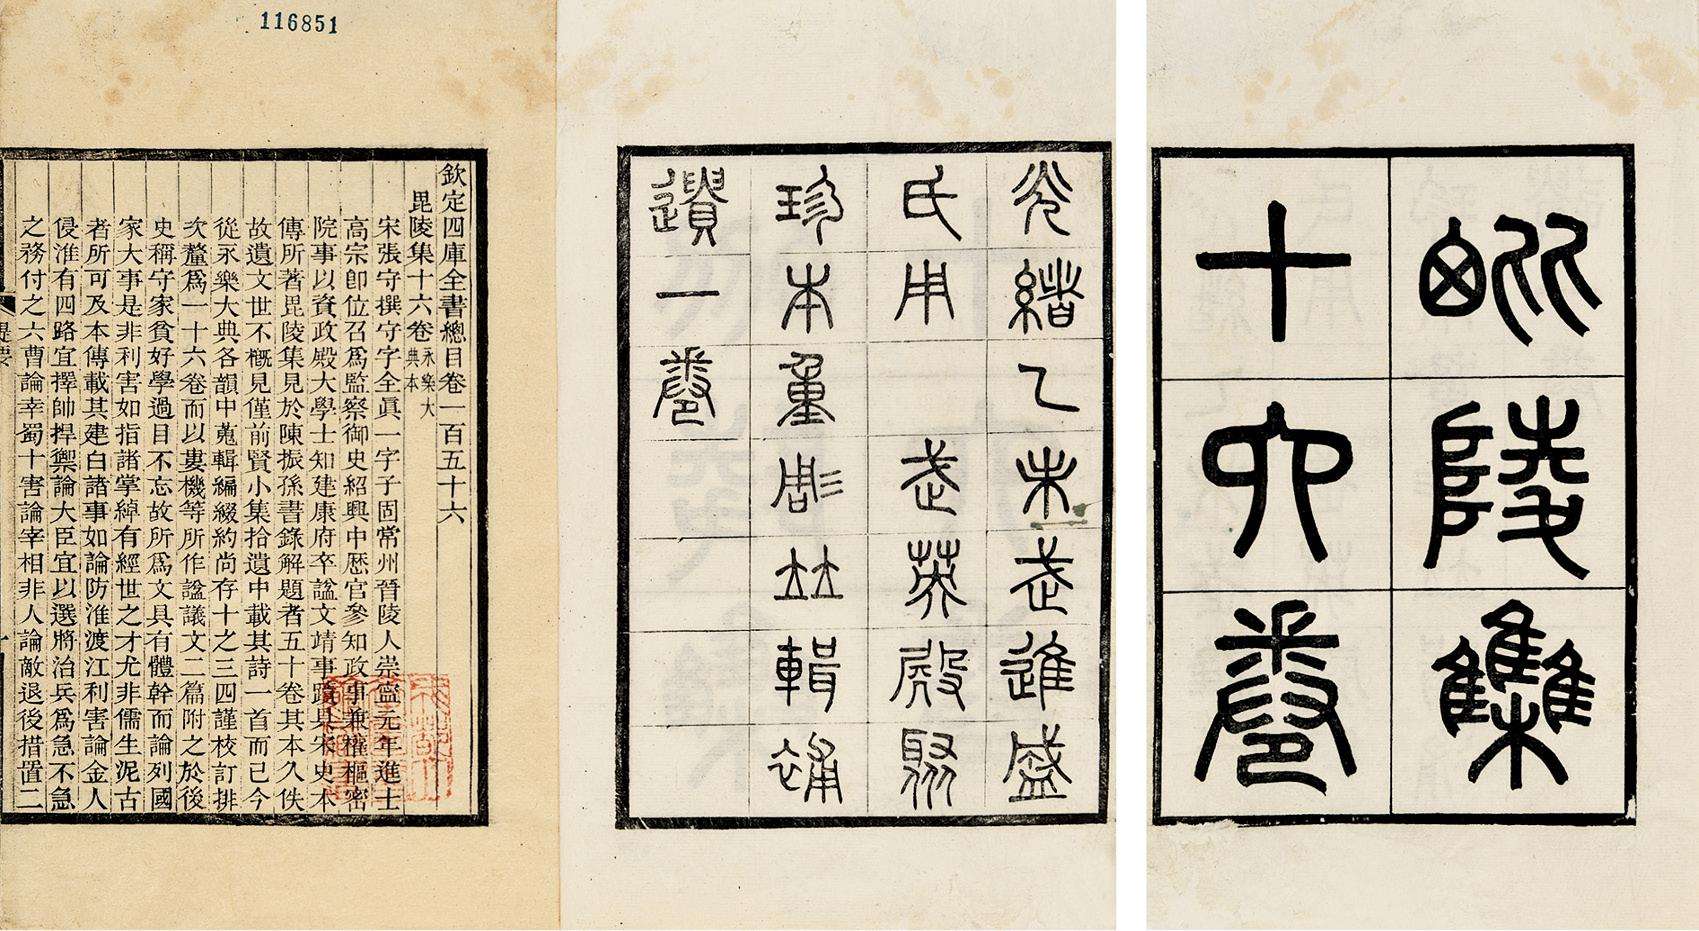 毗陵集
十六卷
光緒乙未武進盛
氏用 武英殿聚
珍本重彫竝輯補
遺一卷
116851
欽定四庫全書總目卷一百五十六
毘陵集十六卷永樂大典本
宋張守撰守字全眞一字子固常州晉陵人崇寧元年進士
高宗卽位召爲監察御史紹興中歷官參知政事兼權樞密
院事以資政殿大學士知建康府卒諡文靖事蹟具宋史本
傳所著毘陵集見於陳振孫書錄解題者五十卷其本久佚
故遺文世不槪見僅前賢小集拾遺中載其詩一首而已今
從永樂大典各韻中蒐輯編綴約尚存十之三四謹校訂排
次釐爲一十六卷而以婁機等所作諡議文二篇附之於後
史稱守家貧好學過目不忘故所爲文具有體幹而論列國
家大事是非利害如指諸掌綽有經世之才尤非儒生泥古
者所可及本傳載其建白諸事如論防淮渡江利害論金人
侵淮有四路宜擇帥捍禦論大臣宜以選將治兵爲急不急
之務付之六曹論幸蜀十害論宰相非人論敵退後措置二
提要